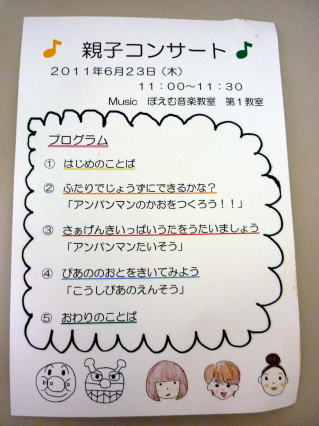 親子コンサート
2011年6月23日（木）
11：00〜11：30
Music　ぽえむ音楽教室　第1教室
プログラム
① はじめのことば
② ふたりでじょうずにできるかな？
「アンパンマンのかおをつくろう！！」
③ さぁげんきいっぱいうたをうたいましょう
「アンパンマンたいそう」
④ ぴあののおとをきいてみよう
「こうしぴあのえんそう」
⑤ おわりのことば